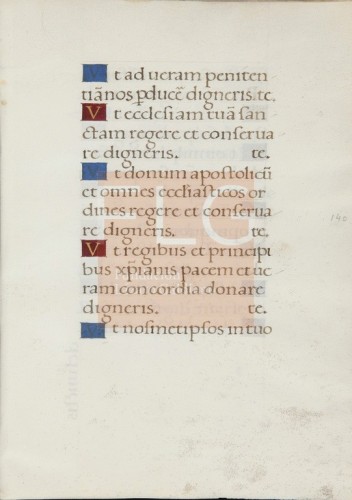 Ut ad ueram peniten
tiã nos ꝑducẽ digneris. te.
Ut ecclesiam tuã san
ctam regere et conserua
re digneris. te.
Ut donum apostolicũ
et omnes ecclĩasticos or
dines regere et conserua
re digneris. te.
Ut regibus et principi
bus xp̃ianis pacem et ue
ram concordia donare
digneris. te.
Ut nosmetipsos in tuo
140
FLC